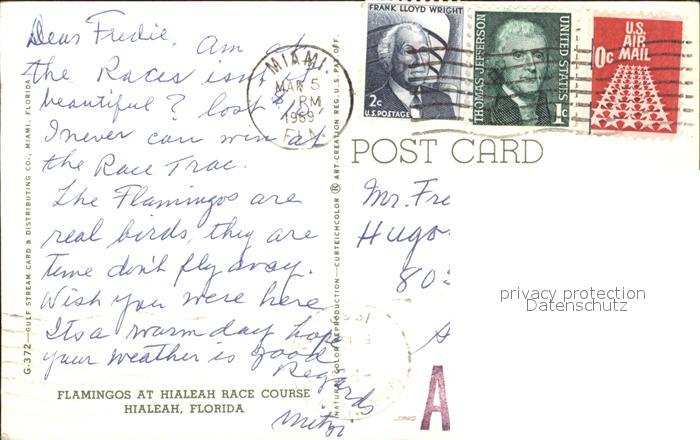 Dear Fredie, Am at
the Races isn't it
beautiful? lost $15
I never can win at
the Race Trac.
The Flamingos are
real birds, they are
tame don't fly away.
Wish you were here
Its a warm day hope
your weather is good
Regards
Mitzi
FLAMINGOS AT HIALEAH RACE COURSE
HIALEAH, FLORIDA
G-372—GULF STREAM CARD & DISTRIBUTING CO., MIAMI, FLORIDA
NATURAL COLOR REPRODUCTION—CURTEICHCOLOR ® ART-CREATION REG. U.S. PAT. OFF.
MIAMI
MAR 5
PM
1969
FLA
FRANK LLOYD WRIGHT
2c
U.S. POSTAGE
THOMAS JEFFERSON
UNITED STATES
1c
U.S.
AIR
MAIL
10c
POST CARD
Mr. Fre
Hugo
80
A
privacy protection
Datenschutz